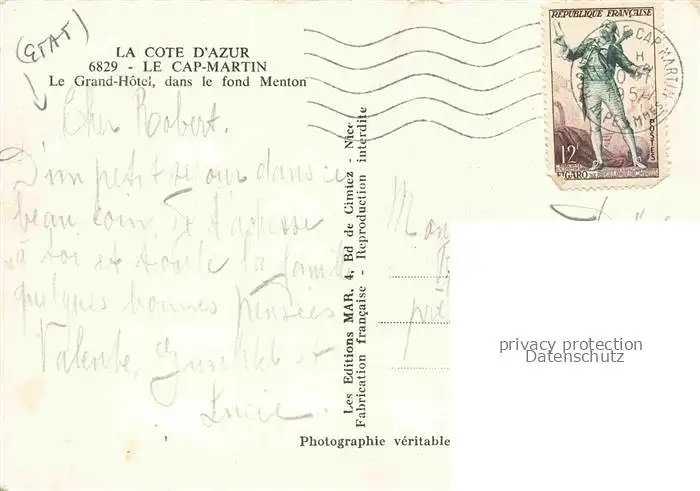 (ETAT)
LA COTE D'AZUR
6829 - LE CAP-MARTIN
Le Grand-Hôtel, dans le fond Menton
Cher Robert.
D'un petit séjour dans ce
beau coin, je t'adresse
à toi et toute la famille
quelques bonnes pensées
Valente, et
Les Editions MAR, 4, Bd de Cimiez - Nice
Fabrication française - Reproduction interdite
Photographie véritable
REPUBLIQUE FRANÇAISE
12F
POSTES
FIGARO
CAP MARTIN
privacy protection
Datenschutz